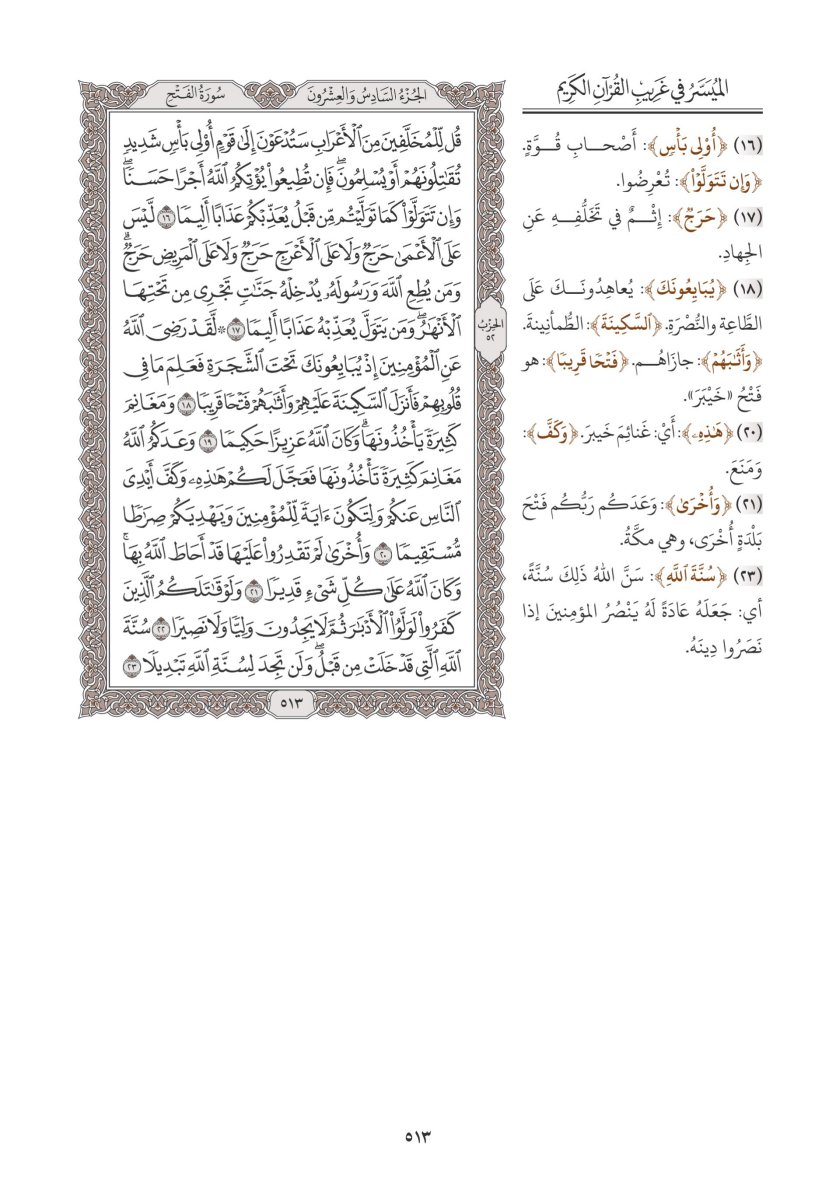 الميسر في غريب القرآن الكريم
(١٦) ﴿أُوْلِي بَأْسٍ﴾: أَصْحابِ قُوَّةٍ.
﴿وَإِن تَتَوَلَّوْاْ﴾: تُعْرِضُوا.
(١٧) ﴿حَرَجٌ﴾: إِثْمٌ في تَخَلُّفِهِ عَنِ
الجِهادِ.
(١٨) ﴿يُبَايِعُونَكَ﴾: يُعاهِدُونَكَ عَلَى
الطَّاعِةِ والنُّصْرَةِ. ﴿ٱلسَّكِينَةَ﴾: الطُّمأنِينةَ.
﴿وَأَثَٰبَهُمْ﴾: جازَاهُم. ﴿فَتْحًا قَرِيبًا﴾: هو
فَتْحُ «خَيْبَرَ».
(٢٠) ﴿هَٰذِهِۦ﴾: أَيْ: غَنائِمَ خَيبرَ. ﴿وَكَفَّ﴾:
وَمَنَعَ.
(٢١) ﴿وَأُخْرَىٰ﴾: وَعَدَكُم رَبُّكُم فَتْحَ
بَلْدَةٍ أُخْرَى، وهي مكَّةُ.
(٢٣) ﴿سُنَّةَ ٱللَّهِ﴾: سَنَّ اللهُ ذَلِكَ سُنَّةً،
أي: جَعَلَهُ عَادَةً لَهُ يَنْصُرُ المؤمِنينَ إذا
نَصَرُوا دِينَهُ.
الجُزْءُ السَّادِسُ وَالعِشْرُونَ سُورَةُ الفَتْحِ
قُل لِّلْمُخَلَّفِينَ مِنَ ٱلْأَعْرَابِ سَتُدْعَوْنَ إِلَىٰ قَوْمٍ أُوْلِي بَأْسٍ شَدِيدٍ
تُقَٰتِلُونَهُمْ أَوْ يُسْلِمُونَۖ فَإِن تُطِيعُواْ يُؤْتِكُمُ ٱللَّهُ أَجْرًا حَسَنًاۖ
وَإِن تَتَوَلَّوْاْ كَمَا تَوَلَّيْتُم مِّن قَبْلُ يُعَذِّبْكُمْ عَذَابًا أَلِيمًا ١٦ لَّيْسَ
عَلَى ٱلْأَعْمَىٰ حَرَجٌ وَلَا عَلَى ٱلْأَعْرَجِ حَرَجٌ وَلَا عَلَى ٱلْمَرِيضِ حَرَجٌۗ
وَمَن يُطِعِ ٱللَّهَ وَرَسُولَهُۥ يُدْخِلْهُ جَنَّٰتٍ تَجْرِي مِن تَحْتِهَا
ٱلْأَنْهَٰرُۖ وَمَن يَتَوَلَّ يُعَذِّبْهُ عَذَابًا أَلِيمًا ١٧ ۞ لَّقَدْ رَضِيَ ٱللَّهُ
عَنِ ٱلْمُؤْمِنِينَ إِذْ يُبَايِعُونَكَ تَحْتَ ٱلشَّجَرَةِ فَعَلِمَ مَا فِي
قُلُوبِهِمْ فَأَنزَلَ ٱلسَّكِينَةَ عَلَيْهِمْ وَأَثَٰبَهُمْ فَتْحًا قَرِيبًا ١٨ وَمَغَانِمَ
كَثِيرَةً يَأْخُذُونَهَاۗ وَكَانَ ٱللَّهُ عَزِيزًا حَكِيمًا ١٩ وَعَدَكُمُ ٱللَّهُ
مَغَانِمَ كَثِيرَةً تَأْخُذُونَهَا فَعَجَّلَ لَكُمْ هَٰذِهِۦ وَكَفَّ أَيْدِيَ
ٱلنَّاسِ عَنكُمْ وَلِتَكُونَ ءَايَةً لِّلْمُؤْمِنِينَ وَيَهْدِيَكُمْ صِرَٰطًا
مُّسْتَقِيمًا ٢٠ وَأُخْرَىٰ لَمْ تَقْدِرُواْ عَلَيْهَا قَدْ أَحَاطَ ٱللَّهُ بِهَاۚ
وَكَانَ ٱللَّهُ عَلَىٰ كُلِّ شَيْءٍ قَدِيرًا ٢١ وَلَوْ قَٰتَلَكُمُ ٱلَّذِينَ
كَفَرُواْ لَوَلَّوُاْ ٱلْأَدْبَٰرَ ثُمَّ لَا يَجِدُونَ وَلِيًّا وَلَا نَصِيرًا ٢٢ سُنَّةَ
ٱللَّهِ ٱلَّتِي قَدْ خَلَتْ مِن قَبْلُۖ وَلَن تَجِدَ لِسُنَّةِ ٱللَّهِ تَبْدِيلًا ٢٣
الحِزْبُ
٥٢
٥١٣
٥١٣